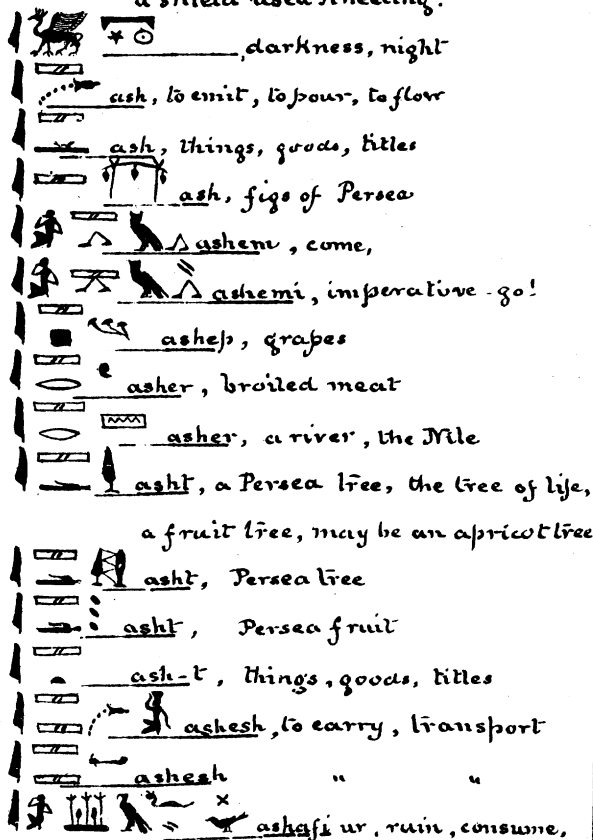 a shield used kneeling.
, darkness, night
ash, to emit, to pour, to flow
ash, things, goods, titles
ash, figs of Persea
ashem, come,
ashemi, imperative - go!
ashep, grapes
asher, broiled meat
asher, a river, the Nile
asht, a Persea tree, the tree of life,
a fruit tree, may be an apricot tree
asht, Persea tree
asht, Persea fruit
ash-t, things, goods, titles
ashesh, to carry, transport
ashesh " "
ashafi ur, ruin, consume,